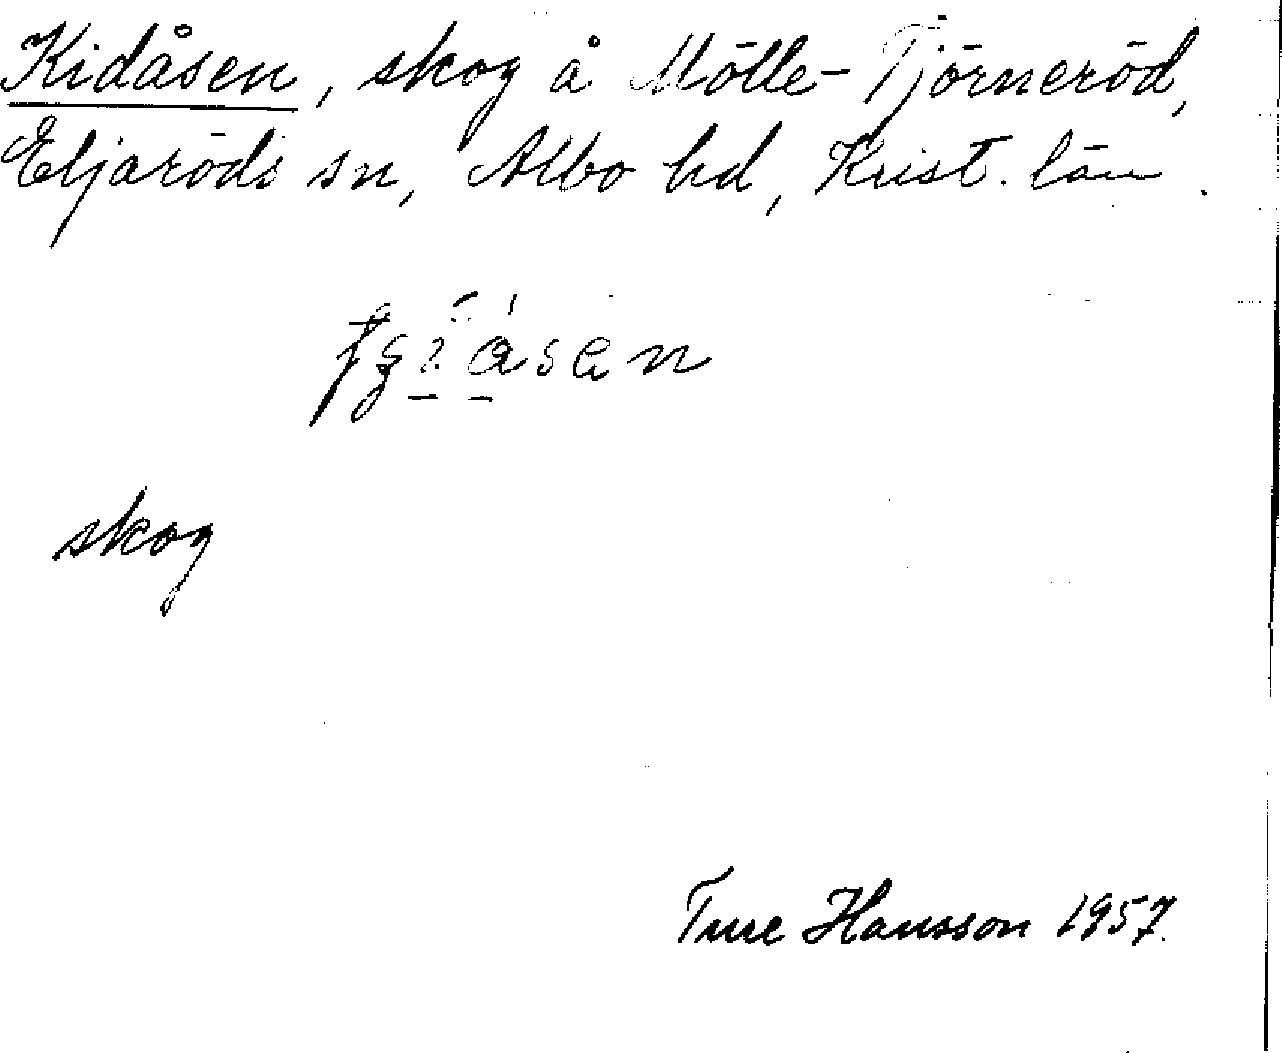 Kidåsen, skog å Mölle-Tjörneröd,
Eljaröds sn, Albo hd, Krist. län.
skog
Ture Hansson 1957.